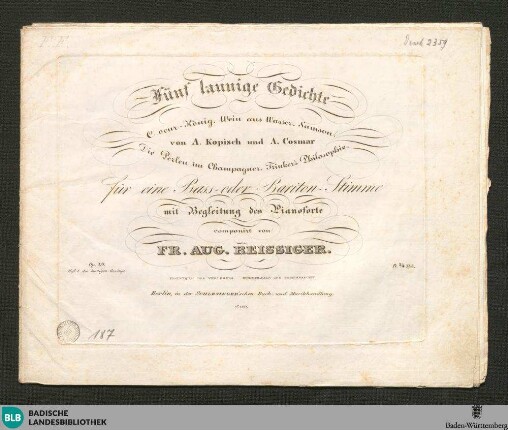 Druck 2359
Fünf launige Gedichte
Wein aus Wasser. Samson.
von A. Kopisch und A. Cosmar
Die Perlen im Champagner. Trinker's Philosophie.
für eine Bass- oder Bariton-Stimme
mit Begleitung des Pianoforte
componirt von
FR. AUG. REISSIGER.
Berlin, in der SCHLESINGER'schen Buch- und Musikhandlung.
187
BLB
BADISCHE
LANDESBIBLIOTHEK
Baden-Württemberg